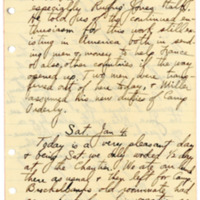 especially Rufus Jones' talk.
He told us of the continued en-
thusiasm for this work still ex-
isting in America both in send-
ing men & money to help France
or also other countries if the way
opened up. Two men were trans-
ferred out of here today, & Miller
assumed his new duties of Camp
Orderly.
Sat. Jan 4.
Today is a very pleasant day
& being Sat. we only worked ½ day
at the We ate our
there as usual & then left for Camp
old roommate had